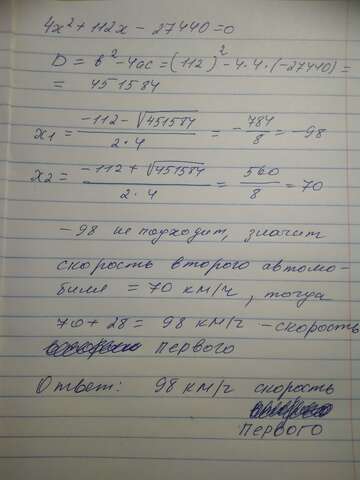 4x² + 112x - 27440 = 0
D = b² - 4ac = (112)² - 4·4·(-27440) =
= 451584
x₁ = (-112 - √451584) / (2·4) = -784/8 = -98
x₂ = (-112 + √451584) / (2·4) = 560/8 = 70
-98 не подходит, значит
скорость второго автомо-
биля = 70 км/ч, тогда
70 + 28 = 98 км/ч - скорость
первого
Ответ: 98 км/ч скорость
первого